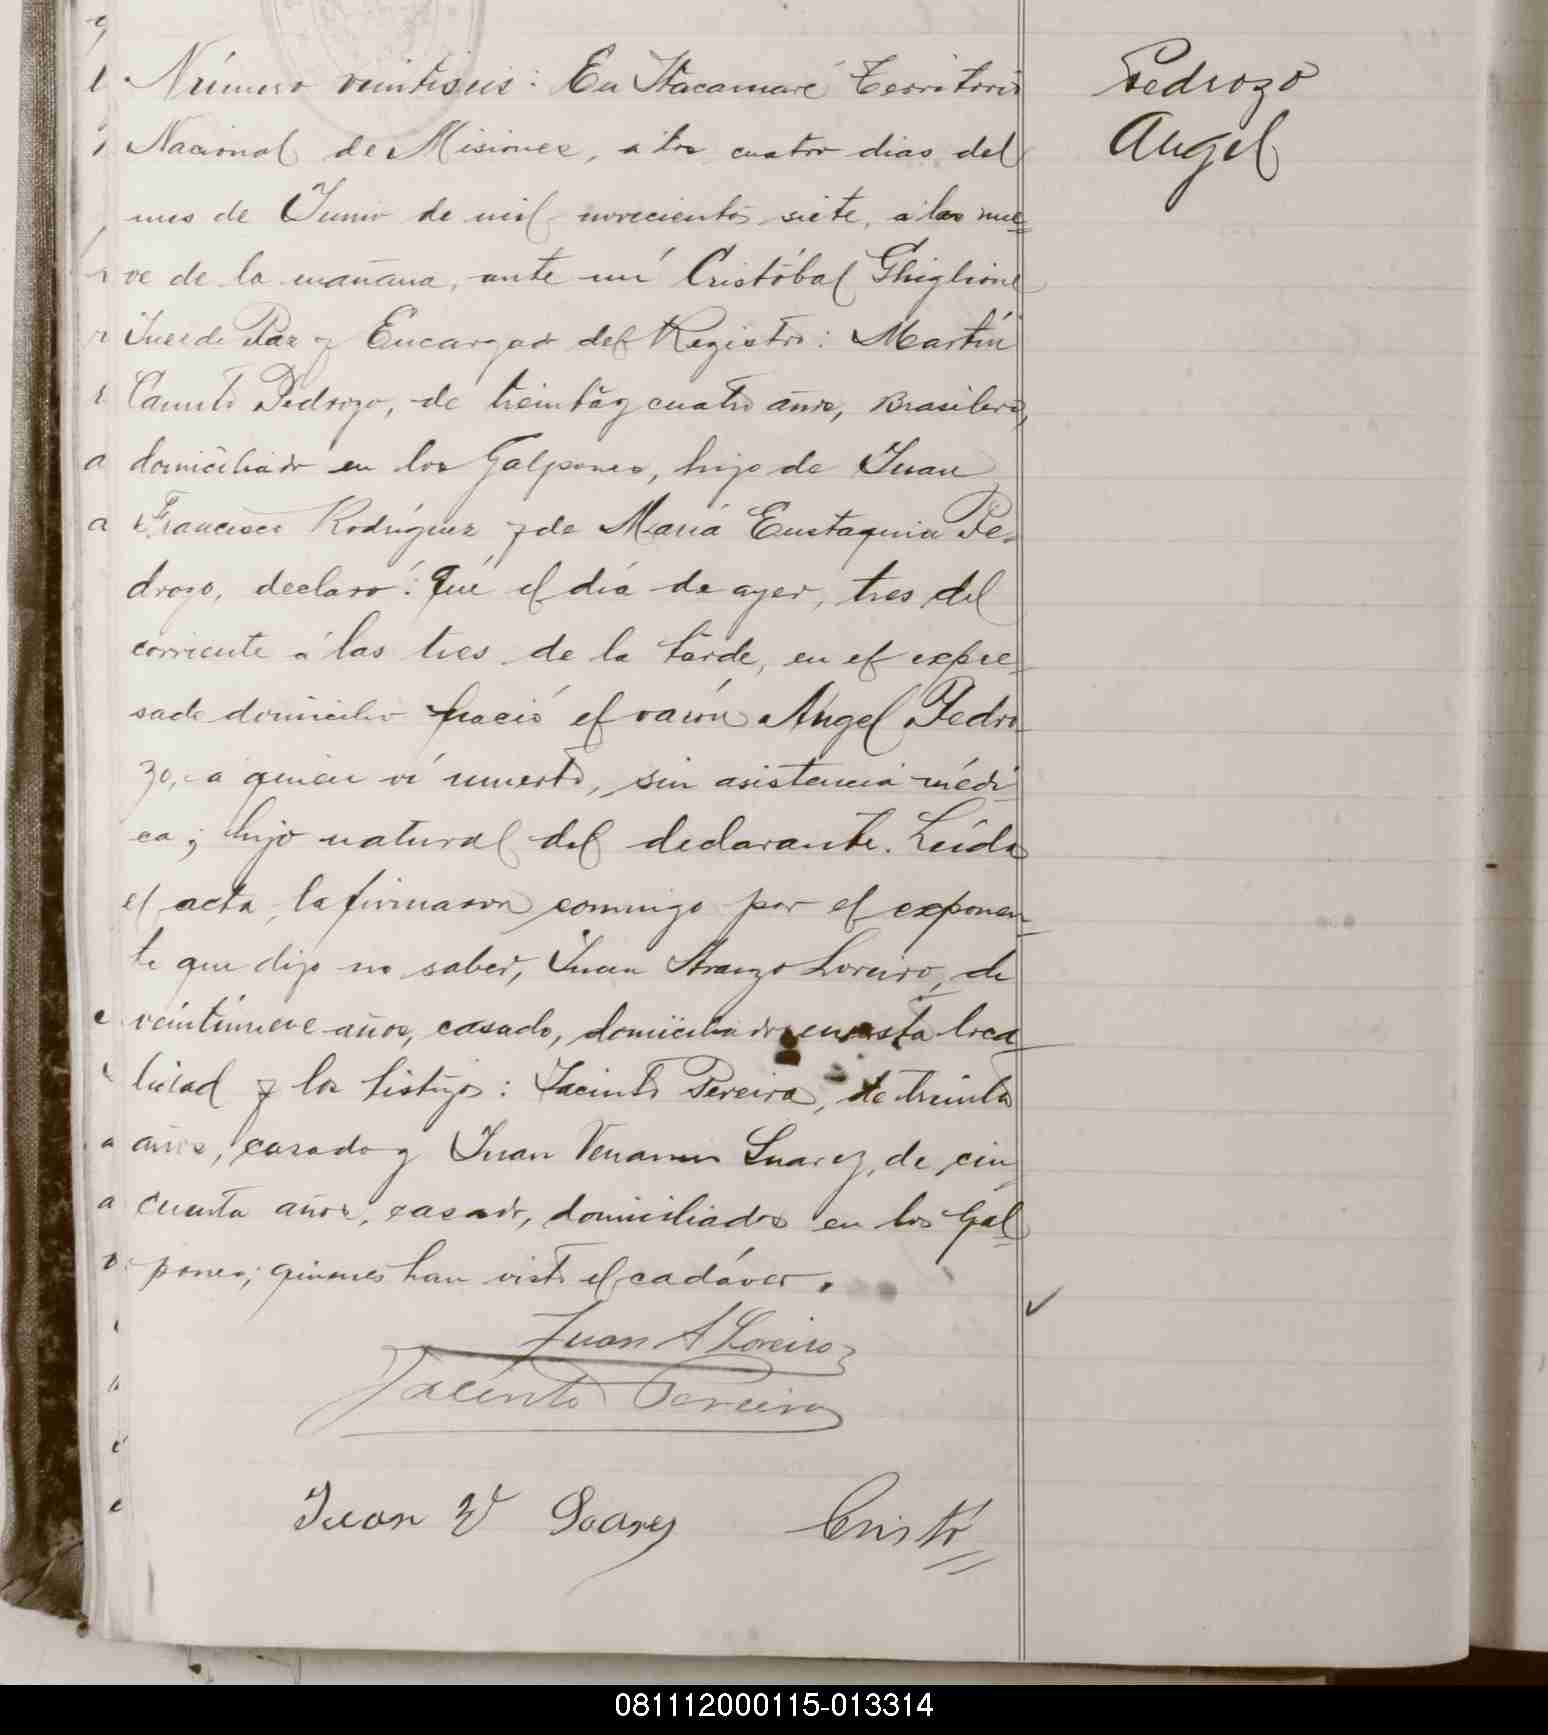 Número veintiseis: En Itacaruaré Territorio
Pedrozo
Angel
Nacional de Misiones, a los cuatro dias del
mes de Junio de mil novecientos siete, a las nue-
ve de la mañana, ante mí Cristóbal Ghiglione
Juez de Paz y Encargado del Registro: Martín
Pedrozo, de treinta y cuatro años, Brasilero,
domiciliado en los Galpones, hijo de Juan
Francisco Rodríguez y de María Eustaquia Pe-
drozo, declaró: Qué el día de ayer, tres del
corriente á las tres de la tarde, en el expre-
sado domicilio nació el varón Angel Pedro-
zo, a quien ví muerto, sin asistencia médi-
ca; hijo natural del declarante. Leída
el acta, la firmaron conmigo por el exponen-
te que dijo no saber, Juan Araujo Loreiro, de
veintinueve años, casado, domiciliado en esta loca-
lidad y los testigos: Jacinto Pereira, de treinta
años, casado y Juan Suarez, de cin-
cuenta años, casado, domiciliados en los Gal-
pones; quienes han visto el cadáver.
Juan A Loreiro
Jacinto Pereira
Juan V Soarez Cristó=
081112000115-013314